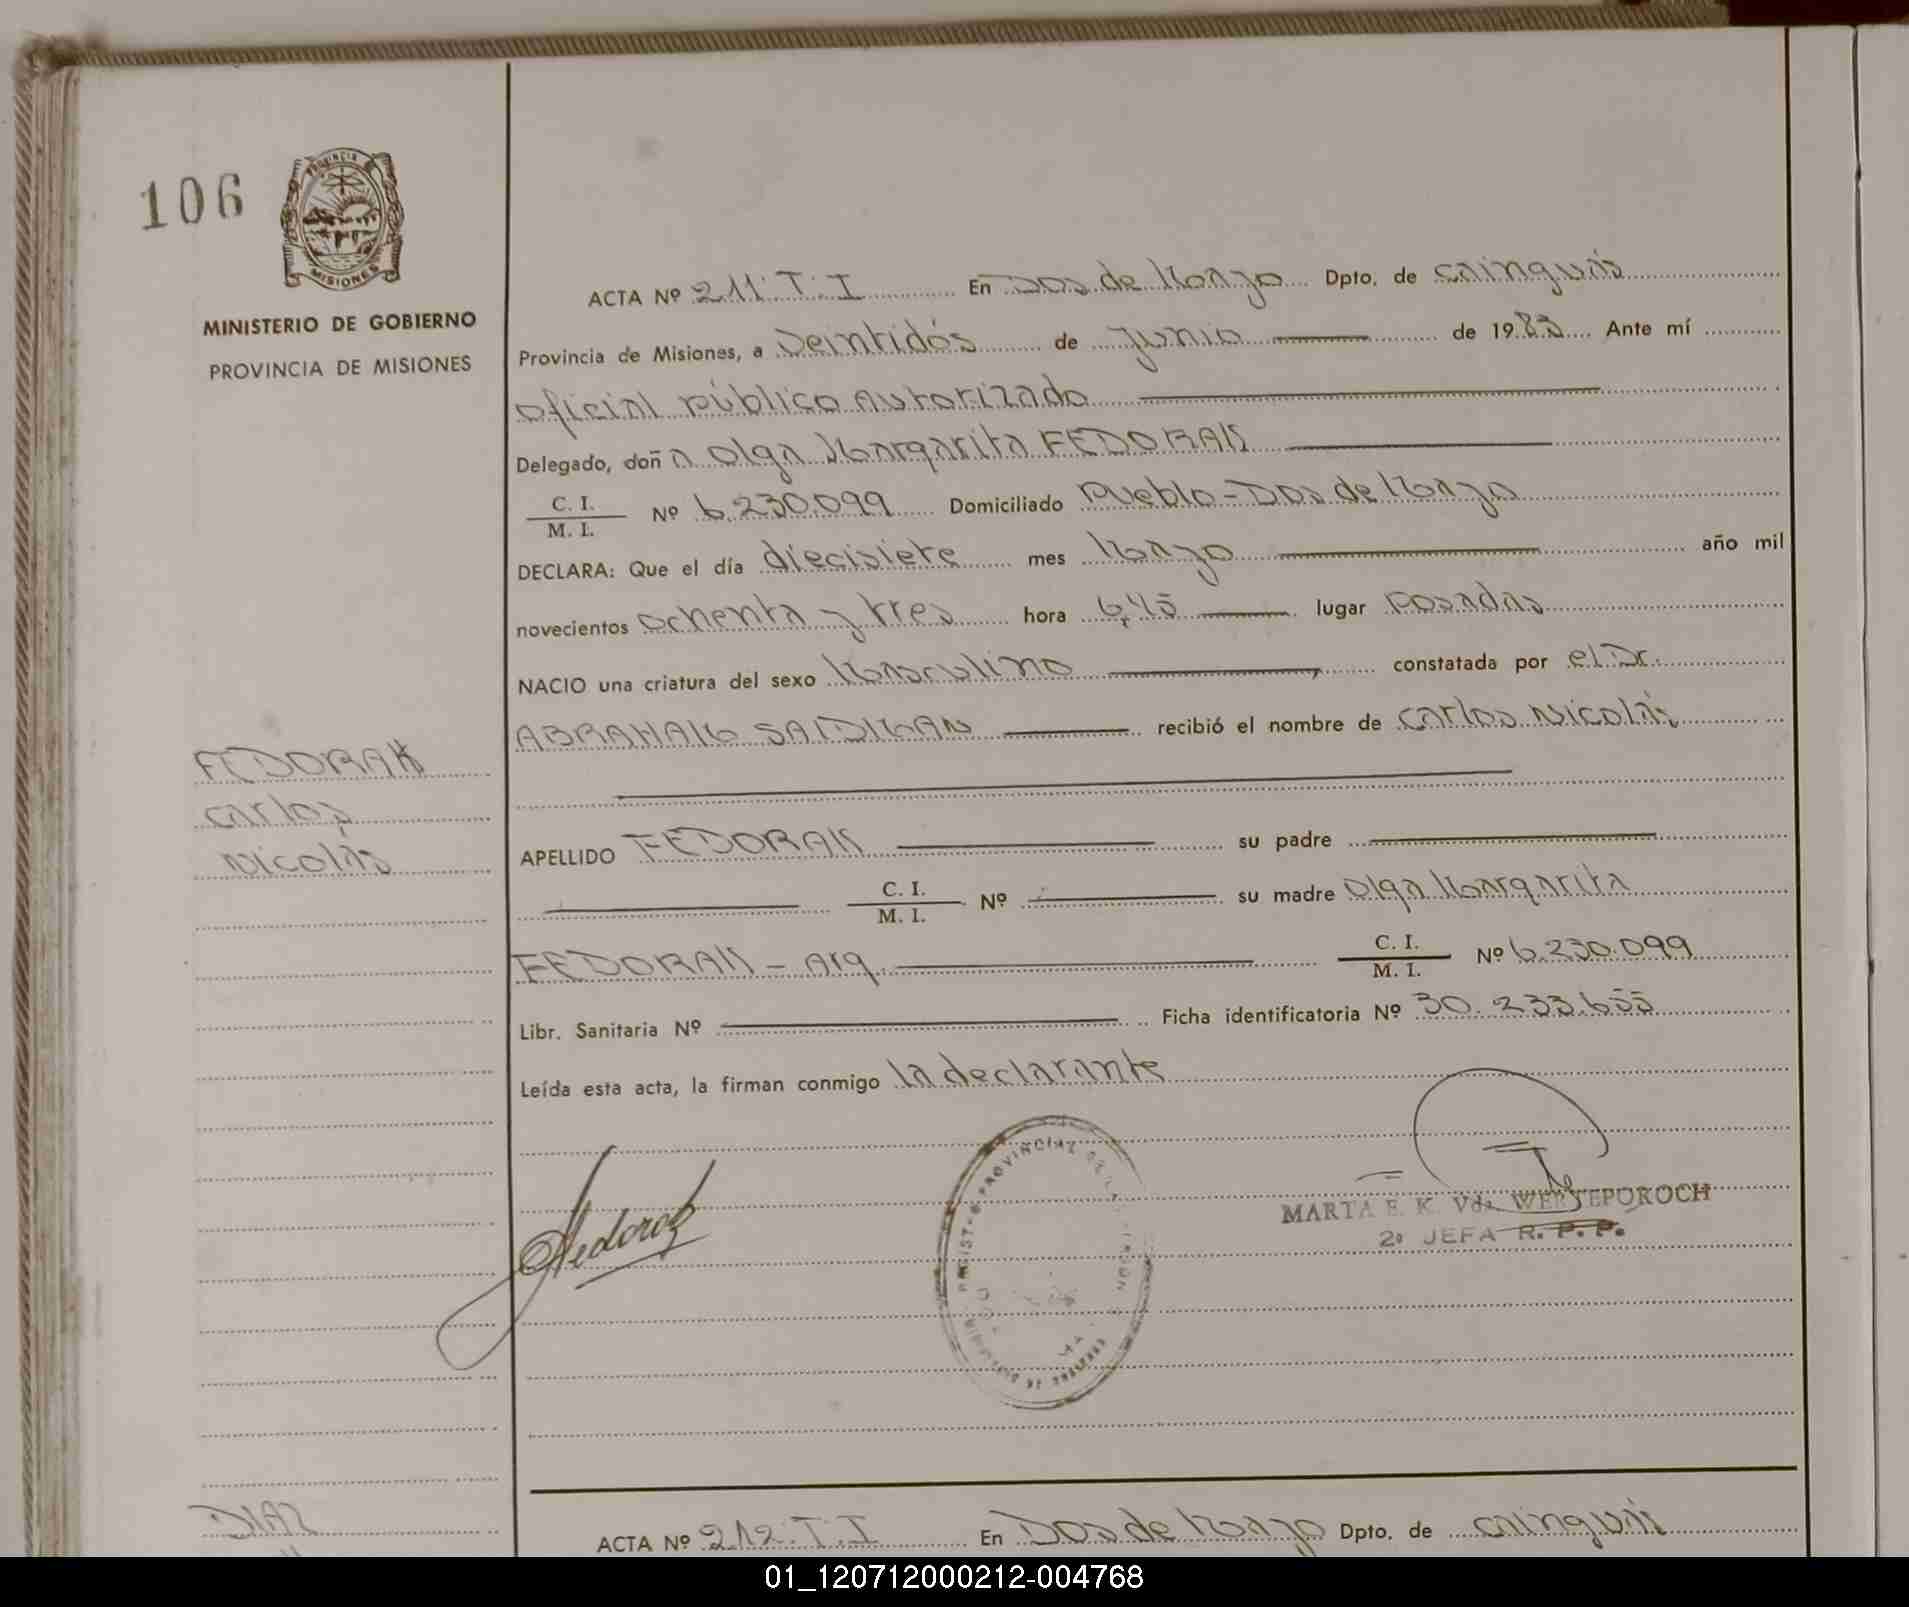 106
PROVINCIA DE
MISIONES
MINISTERIO DE GOBIERNO
PROVINCIA DE MISIONES
ACTA Nº 211. T. I En Dos de Mayo Dpto. de Cainguás
Provincia de Misiones, a veintidós de Junio de 1983 Ante mí
oficial público autorizado
Delegado, doña Olga Margarita FEDORAK
C. I. / M. I. Nº 6.230.099 Domiciliado Pueblo - Dos de Mayo
DECLARA: Que el día diecisiete mes Mayo año mil
novecientos ochenta y tres hora 6,45 lugar Posadas
NACIO una criatura del sexo Masculino constatada por el Dr.
ABRAHAM SAIDMAN recibió el nombre de Carlos Nicolás
FEDORAK
Carlos
Nicolás
APELLIDO FEDORAK su padre
C. I. / M. I. Nº su madre Olga Margarita
FEDORAK - Arg. C. I. / M. I. Nº 6.230.099
Libr. Sanitaria Nº Ficha identificatoria Nº 30.233.655
Leída esta acta, la firman conmigo la declarante
Fedorak
MARTA E. K. Vda. WERTEPOROCH
2º JEFA R. P. P.
DIAZ
ACTA Nº 212. T. I En Dos de Mayo Dpto. de Cainguás
01_120712000212-004768